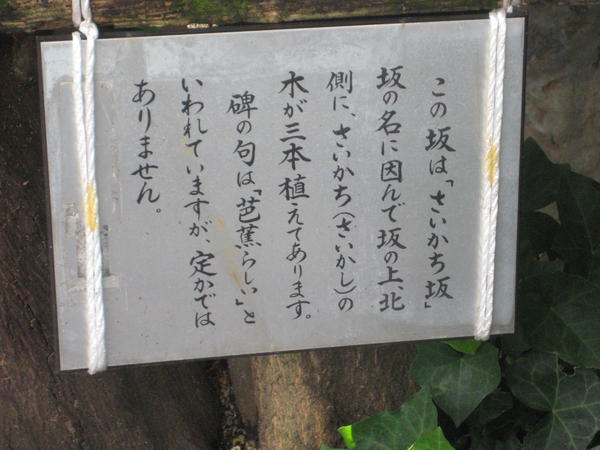 この坂は「さいかち坂」
坂の名に因んで坂の上、北
側に、さいかち(さいかし)の
木が三本植えてあります。
碑の句は「芭蕉らしい」と
いわれていますが、定かでは
ありません。